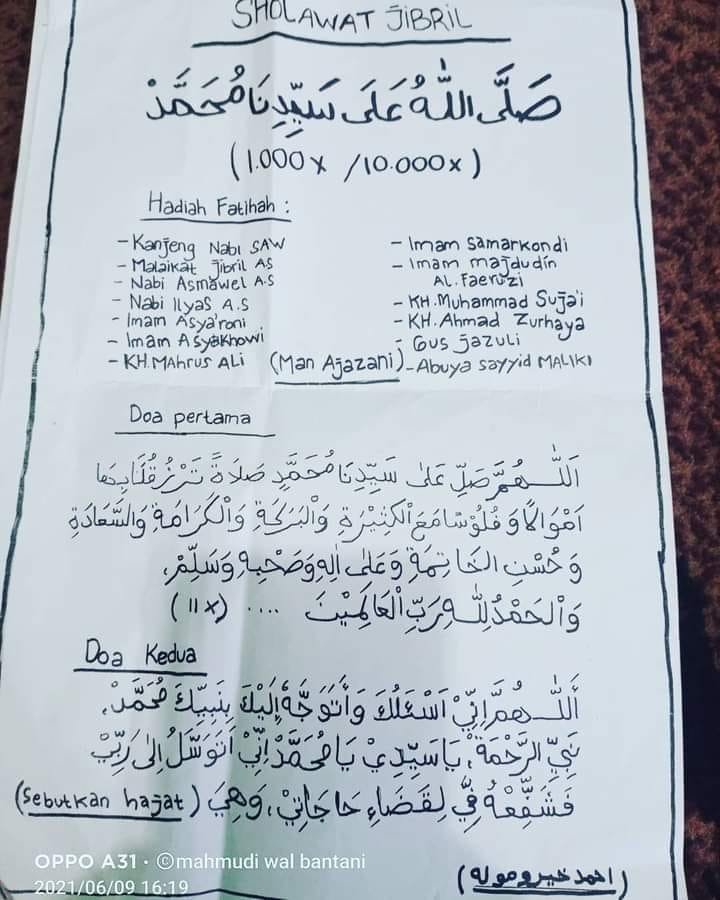 SHOLAWAT JIBRIL
صَلَّى اللّٰهُ عَلَى سَيِّدِنَا مُحَمَّدْ
(1.000 x / 10.000 x)
Hadiah Fatihah :
- Kanjeng Nabi SAW
- Malaikat Jibril AS
- Nabi Asmawel A.S
- Nabi Ilyas A.S
- Imam Asya'roni
- Imam Asyakhowi
- KH. MAHRUS ALI
- Imam Samarkondi
- Imam majdudin
AL. Faeruzi
- KH. Muhammad Suja'i
- KH. Ahmad Zurhaya
- Gus Jazuli
(Man Ajazani) - Abuya Sayyid MALIKI
Doa pertama
اَللّٰهُمَّ صَلِّ عَلَى سَيِّدِنَا مُحَمَّدٍ صَلَاةً تَرْزُقُنَا بِهَا
اَمْوَالًا وَفُلُوْسًا مَعَ الْكَثِيْرَةِ وَالْبَرَكَةِ وَالْكَرَامَةِ وَالسَّعَادَةِ
وَحُسْنِ الْخَاتِمَةِ وَعَلَى اٰلِهِ وَصَحْبِهِ وَسَلِّمْ،
وَالْحَمْدُ لِلّٰهِ رَبِّ الْعَالَمِيْنَ .... (11 x)
Doa Kedua
أَللّٰهُمَّ اِنِّيْ اَسْئَلُكَ وَأَتَوَجَّهُ إِلَيْكَ بِنَبِيِّكَ مُحَمَّدْ،
نَبِيِّ الرَّحْمَةْ، يَاسَيِّدِيْ يَا مُحَمَّدْ اِنِّيْ اَتَوَسَّلُ اِلٰى رَبِّيْ
فَشَفِّعْهُ فِيَّ لِقَضَاءِ حَاجَاتِيْ، وَهِيَ (Sebutkan hajat)
(احمد خيرو موله)
OPPO A31 · ©mahmudi wal bantani
2021/06/09 16:19